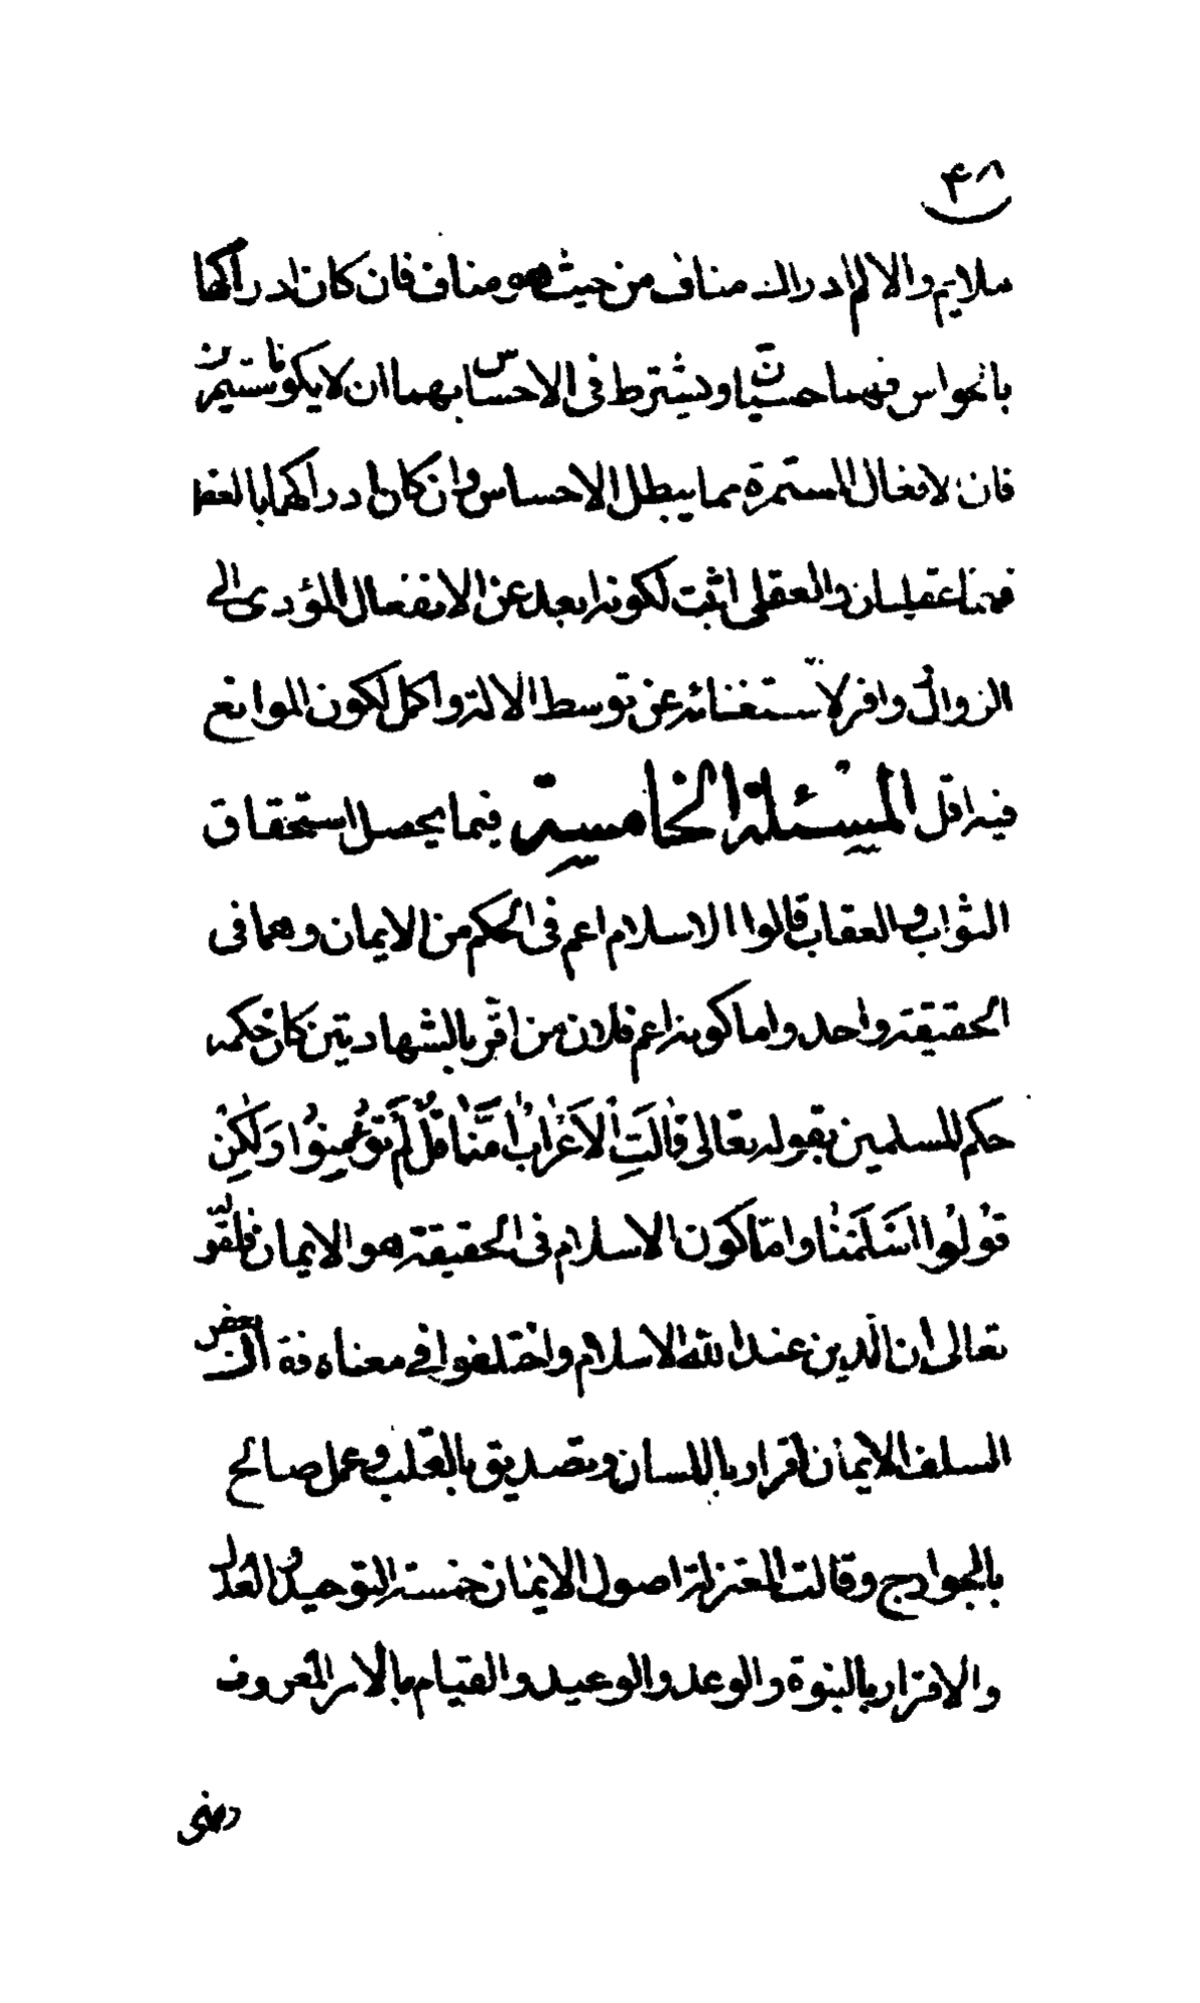 ۴۸
ملایم والالم ادراك مناف من حيث هو مناف فان كان ادراكها
بالحواس فهما حسیتان ويشترط فى الاحساس بهما ان لا يكونا مستمرين
فان الانفعال المستمرة مما يبطل الاحساس وان كان ادراكهما بالعقل
فهما عقليان والعقلى اثبت لكونه ابعد عن الانفعال المؤدى الى
الزوال وافر لاستغنائه عن توسط الالة واكمل لكون الموانع
فيه اقل المسئلة الخامسة فيما يحصل استحقاق
الثواب والعقاب قالوا الاسلام اعم فى الحكم من الايمان وهما فى
الحقيقة واحد واما كونه اعم فلان من اقر بالشهادتين كان حكمه
حكم المسلمين بقوله تعالى قَالَتِ الْاَعْرَابُ اٰمَنَّا قُلْ لَمْ تُؤْمِنُوا وَلٰكِنْ
قُوْلُوا اَسْلَمْنَا وامّا كون الاسلام فى الحقيقة هو الايمان فلقوله
تعالى ان الّدين عند الله الاسلام واختلفوا فى معناه فقال بعض
السلف الايمان اقرار باللسان وتصديق بالقلب وعمل صالح
بالجوارح وقالت المعتزلة اصول الايمان خمسة التوحيد والعدل
والاقرار بالنبوة والوعد والوعيد والقيام بالامر المعروف